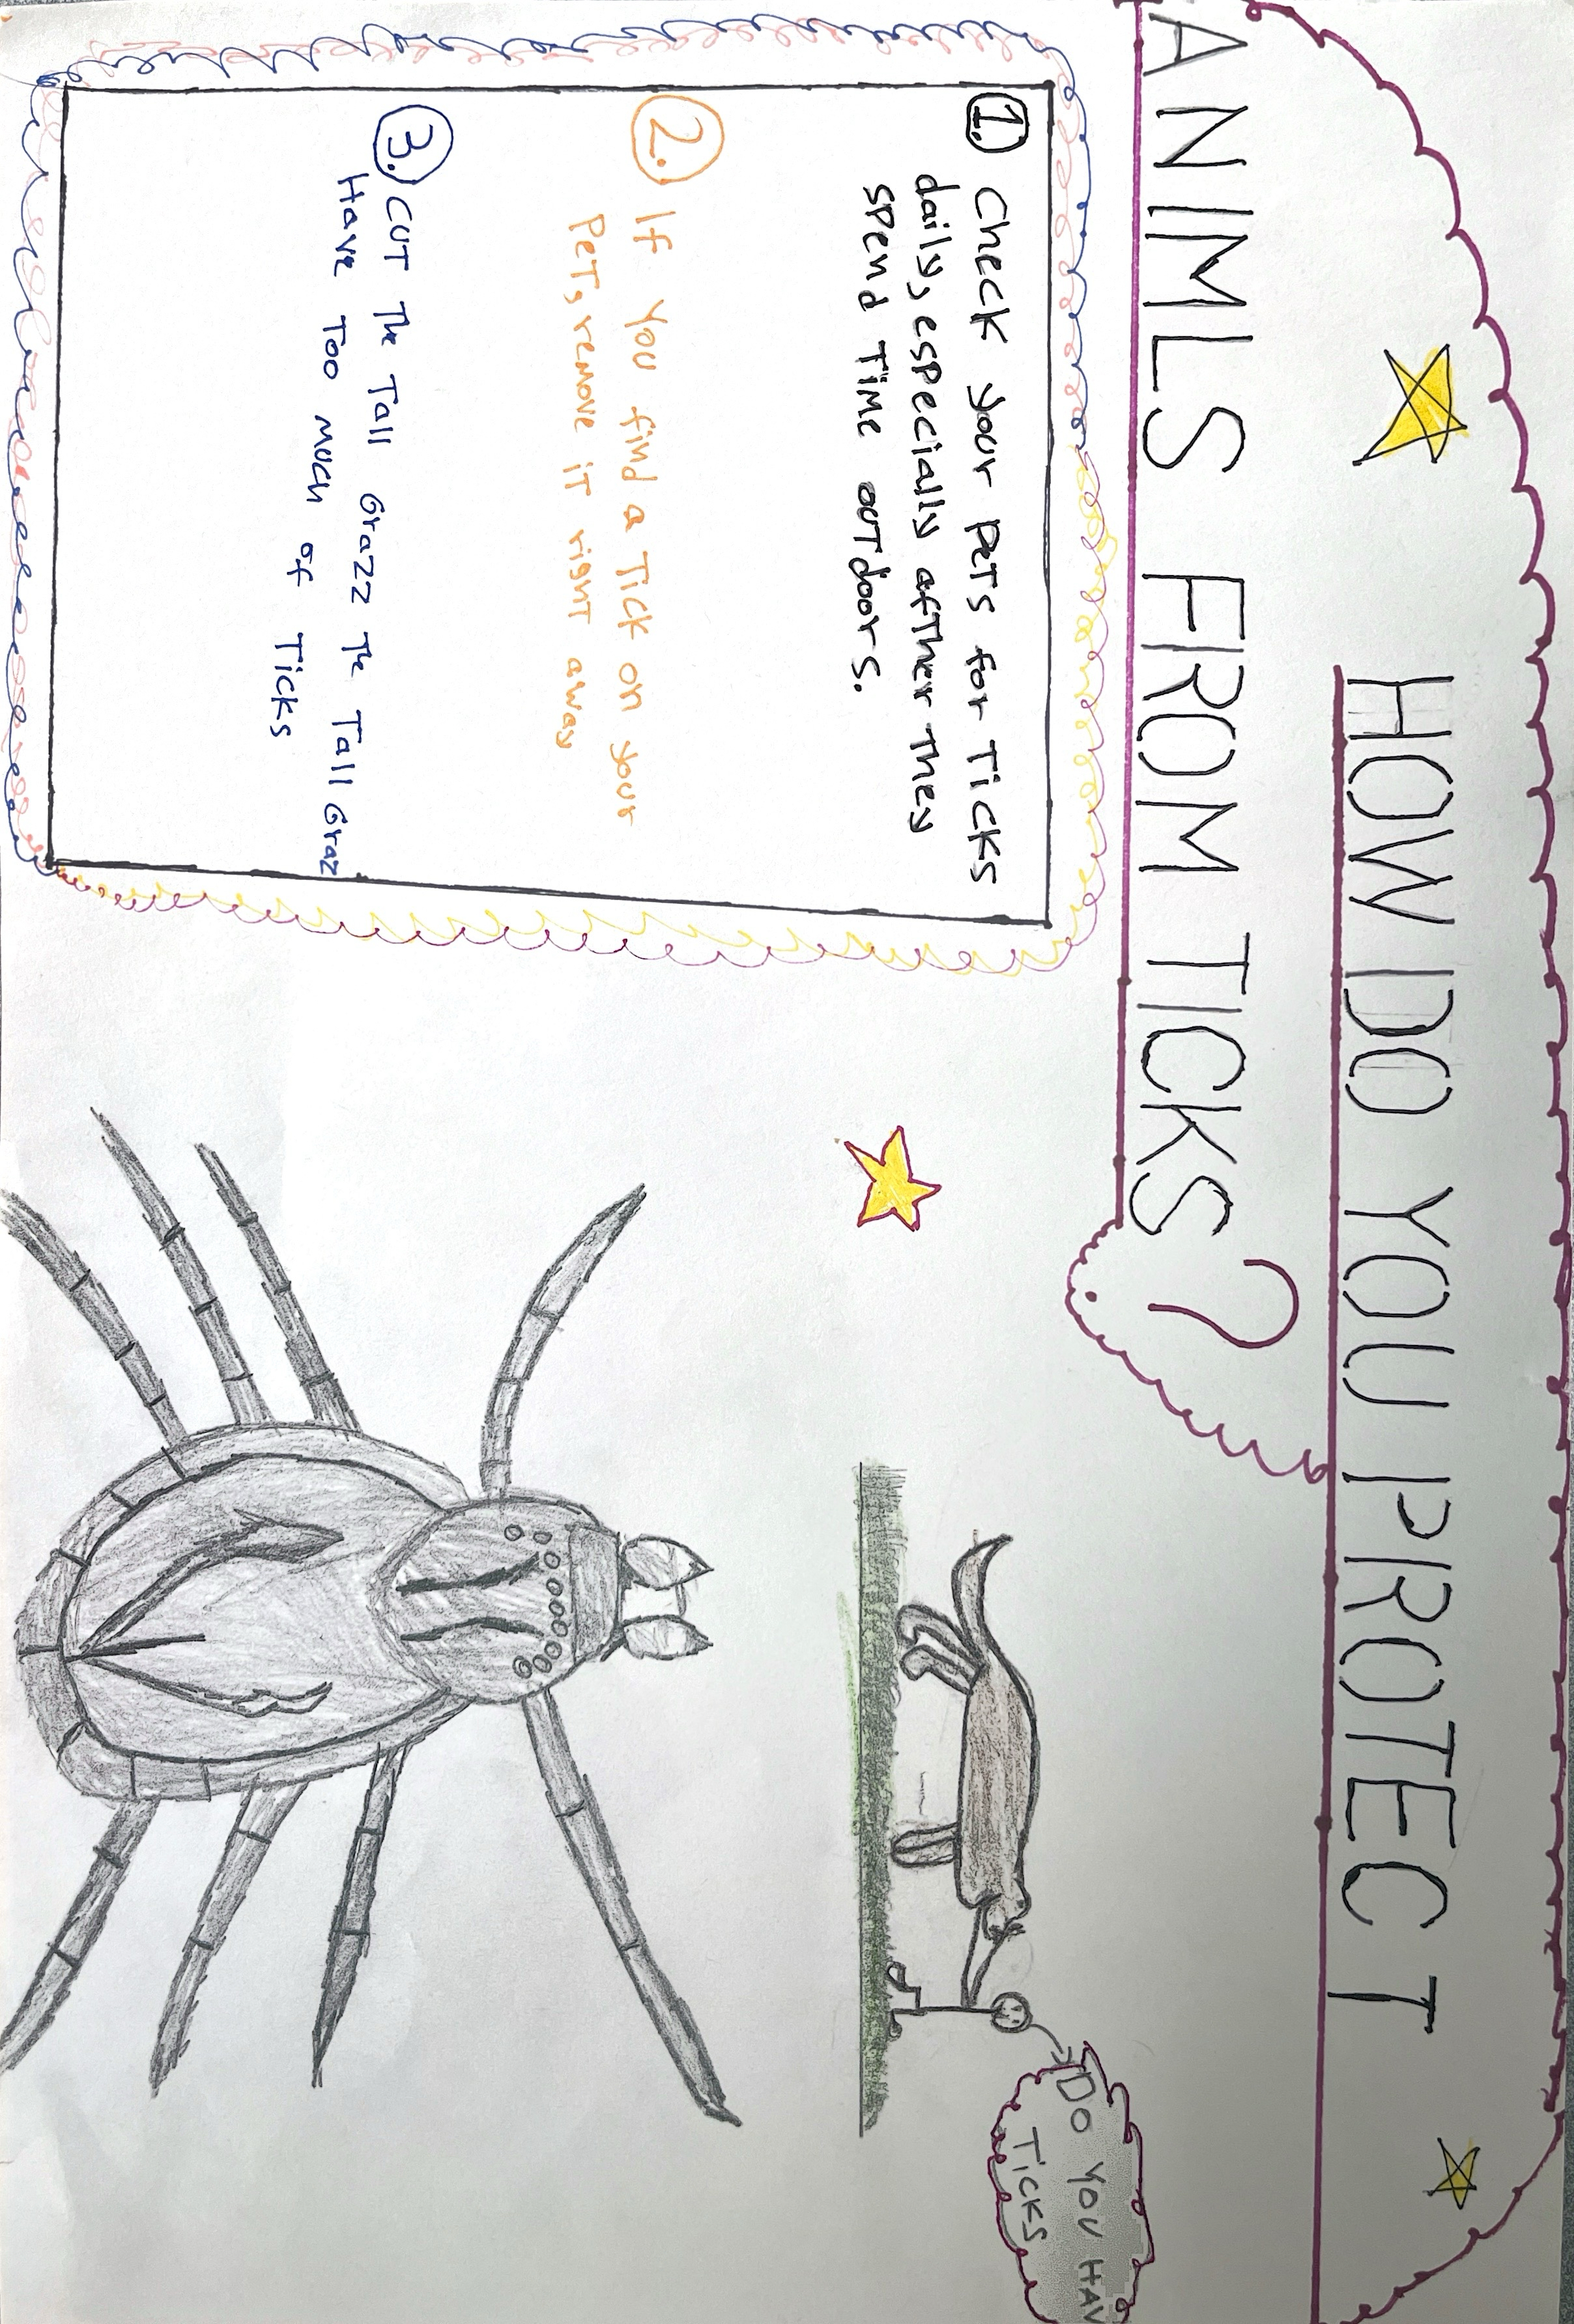 HOW DO YOU PROTECT
ANIMLS FROM TICKS?
1. Check your pets for Ticks
daily, especially afther they
spend Time outdoors.
2. If you find a Tick on your
PeT, remove iT right away
3. CUT The Tall Grazz The Tall Graz
Have Too much of Ticks
Do YOU HAV
TICKS